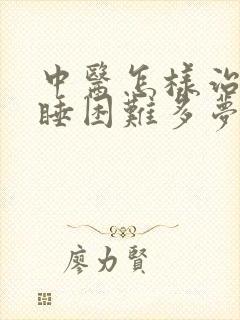 中醫怎樣治
睡困難多夢
廖力賢